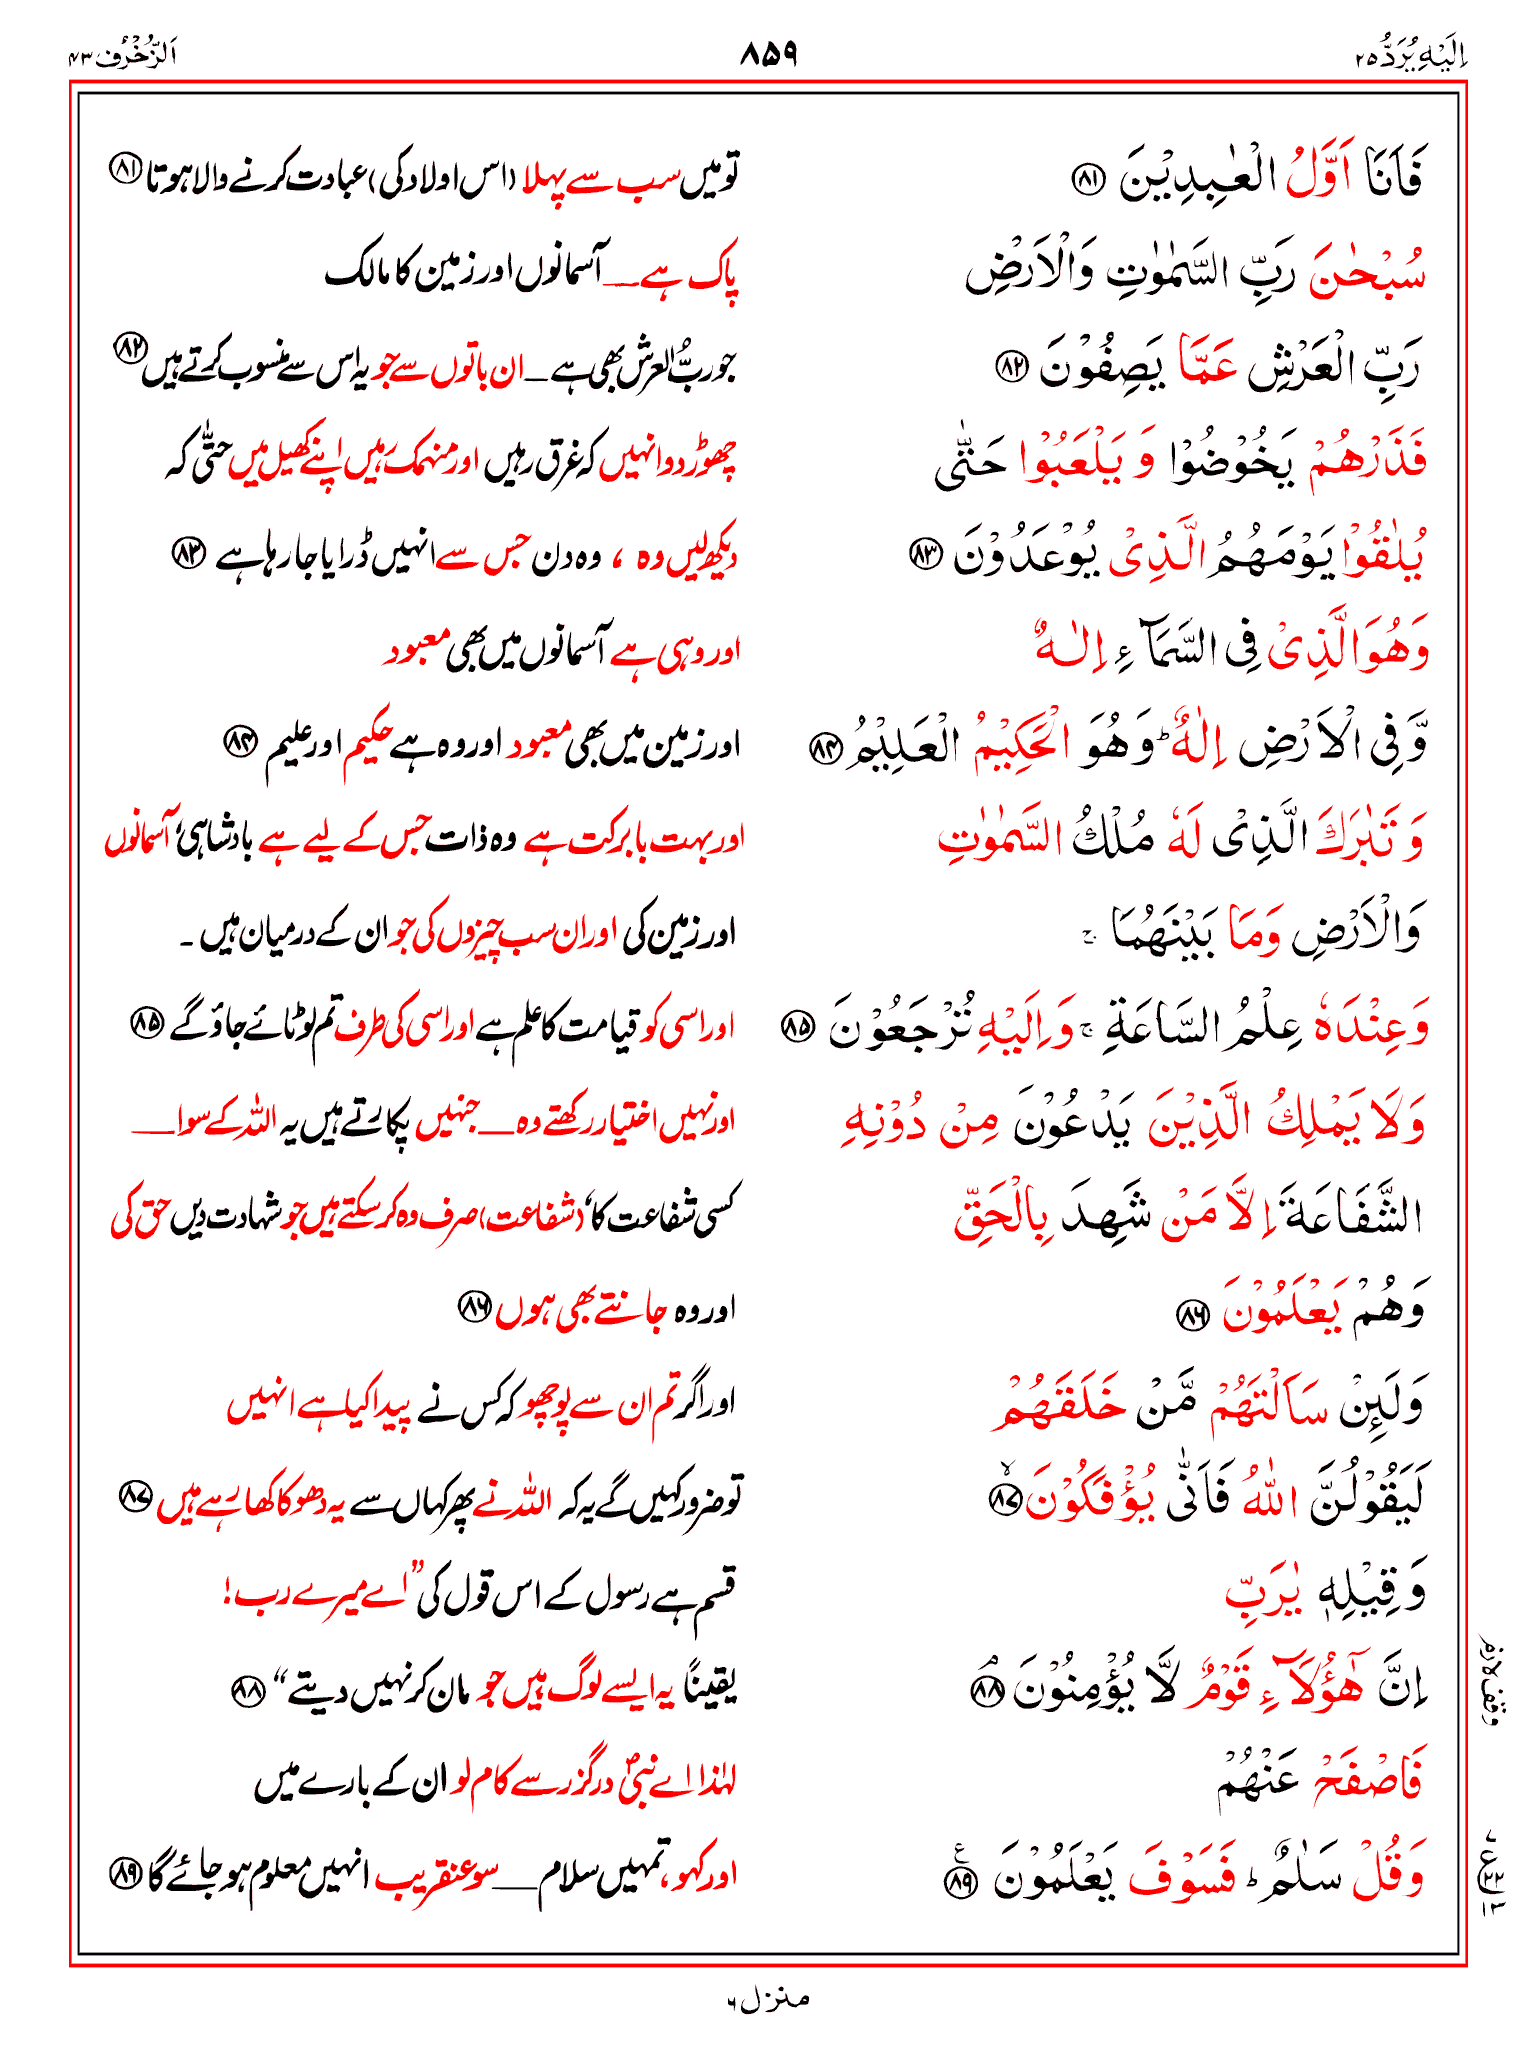 اِلَيْهِ يُرَدُّ ٢٥
٨٥٩
اَلزُّخْرُف ٤٣
فَاَنَا اَوَّلُ الْعٰبِدِيْنَ ﴿٨١﴾ تو میں سب سے پہلا (اس اولاد کی) عبادت کرنے والا ہوتا ﴿٨١﴾
سُبْحٰنَ رَبِّ السَّمٰوٰتِ وَالْاَرْضِ پاک ہے ــ آسمانوں اور زمین کا مالک
رَبِّ الْعَرْشِ عَمَّا يَصِفُوْنَ ﴿٨٢﴾ جو ربُّ العرش بھی ہے ــ ان باتوں سے جو یہ اس سے منسوب کرتے ہیں ﴿٨٢﴾
فَذَرْهُمْ يَخُوْضُوْا وَ يَلْعَبُوْا حَتّٰى چھوڑ دو انہیں کہ غرق رہیں اور منہمک رہیں اپنے کھیل میں حتّٰی کہ
يُلٰقُوْا يَوْمَهُمُ الَّذِىْ يُوْعَدُوْنَ ﴿٨٣﴾ دیکھ لیں وہ ، وہ دن جس سے انہیں ڈرایا جا رہا ہے ﴿٨٣﴾
وَهُوَ الَّذِىْ فِى السَّمَآءِ اِلٰهٌ اور وہی ہے آسمانوں میں بھی معبود
وَّفِى الْاَرْضِ اِلٰهٌ ؕ وَهُوَ الْحَكِيْمُ الْعَلِيْمُ ﴿٨٤﴾ اور زمین میں بھی معبود اور وہ ہے حکیم اور علیم ﴿٨٤﴾
وَ تَبٰرَكَ الَّذِىْ لَهٗ مُلْكُ السَّمٰوٰتِ اور بہت بابرکت ہے وہ ذات جس کے لیے ہے بادشاہی، آسمانوں
وَالْاَرْضِ وَمَا بَيْنَهُمَا ۚ اور زمین کی اور ان سب چیزوں کی جو ان کے درمیان ہیں ۔
وَعِنْدَهٗ عِلْمُ السَّاعَةِ ۚ وَاِلَيْهِ تُرْجَعُوْنَ ﴿٨٥﴾ اور اسی کو قیامت کا علم ہے اور اسی کی طرف تم لوٹائے جاؤ گے ﴿٨٥﴾
وَلَا يَمْلِكُ الَّذِيْنَ يَدْعُوْنَ مِنْ دُوْنِهِ اور نہیں اختیار رکھتے وہ ــ جنہیں پکارتے ہیں یہ اللہ کے سوا ــ
الشَّفَاعَةَ اِلَّا مَنْ شَهِدَ بِالْحَقِّ کسی شفاعت کا، (شفاعت) صرف وہ کر سکتے ہیں جو شہادت دیں حق کی
وَهُمْ يَعْلَمُوْنَ ﴿٨٦﴾ اور وہ جانتے بھی ہوں ﴿٨٦﴾
وَلَئِنْ سَاَلْتَهُمْ مَّنْ خَلَقَهُمْ اور اگر تم ان سے پوچھو کہ کس نے پیدا کیا ہے انہیں
لَيَقُوْلُنَّ اللّٰهُ فَاَنّٰى يُؤْفَكُوْنَ ۙ﴿٨٧﴾ تو ضرور کہیں گے یہ کہ اللہ نے پھر کہاں سے یہ دھوکا کھا رہے ہیں ﴿٨٧﴾
وَقِيْلِهٖ يٰرَبِّ قسم ہے رسول کے اس قول کی ”اے میرے رب!
اِنَّ هٰٓؤُلَآءِ قَوْمٌ لَّا يُؤْمِنُوْنَ ۘ﴿٨٨﴾ یقیناً یہ ایسے لوگ ہیں جو مان کر نہیں دیتے“ ﴿٨٨﴾
وقف لازم
فَاصْفَحْ عَنْهُمْ لہٰذا اے نبیؐ درگزر سے کام لو ان کے بارے میں
وَقُلْ سَلٰمٌ ؕ فَسَوْفَ يَعْلَمُوْنَ ﴿٨٩﴾ اور کہو، تمہیں سلام ــ سو عنقریب انہیں معلوم ہو جائے گا ﴿٨٩﴾
منزل ٦